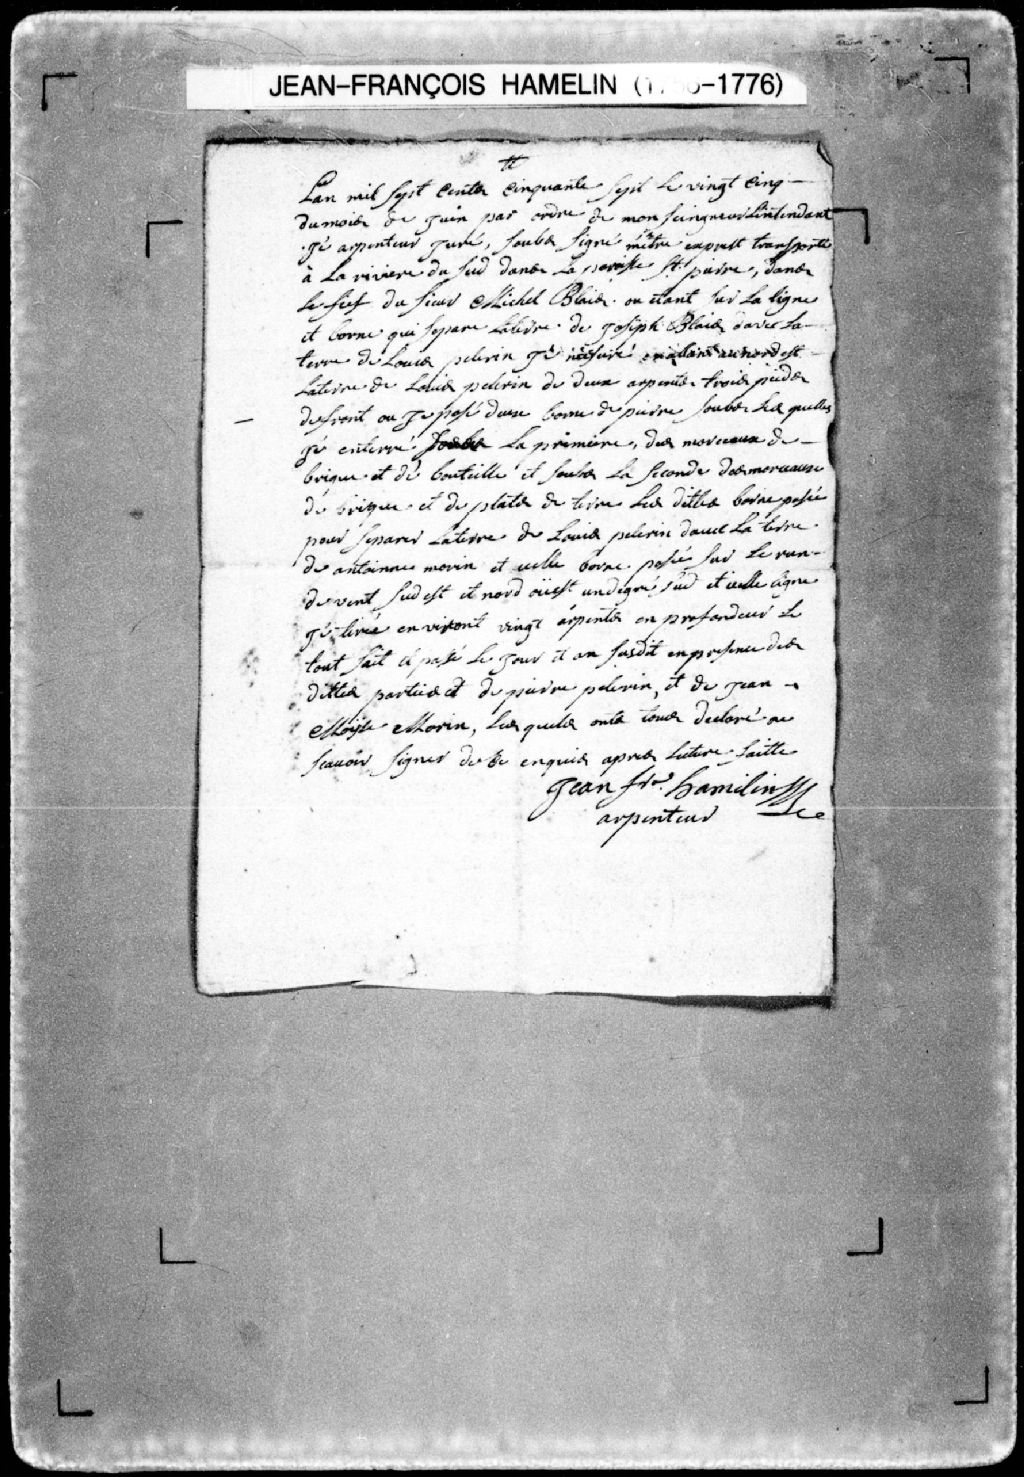 JEAN-FRANÇOIS HAMELIN (1   -1776)
Lan mil sept cents cinquante sept le vingt cinq
du mois de juin par ordre de mon seingneur Lintendant
gé arpenteur juré, soubs signé metre exprest transporté
à La riviere du sud dans La paroisse St. pierre, dans
Le fief du sieur Michel Blais ou étant sur La ligne
et borne qui separe Laterre de joseph Blais davec La
terre de Louis pelerin gé mésuré enallant aunord est
Laterre de Louis pelerin de deux arpents trois pieds
defront ou ge posé deux borne de pierre soubs Les quelles
gé enterré La premiere, des morceaux de
brique et de bouteille et soubs La seconde des morceaux
de brique et de plats de terre Les dittes borne posée
pour separer Laterre de Louis pelerin davec La terre
de antoinne morin et icelle borne posée sur Le run
de vent sud est et nord oüest undegré sud et icelleLigne
gé tirée environt vingt arpents en profondeur Le
tout fait et passé Le jour et an susdit enpresence des
dittes parties et de pierre pelerin, et de jean
Moïse Morin, Les quels onts tous declaré ne
scavoir signer de ce enquis apres Lecture faitte
jean frs. hamelin
arpenteur